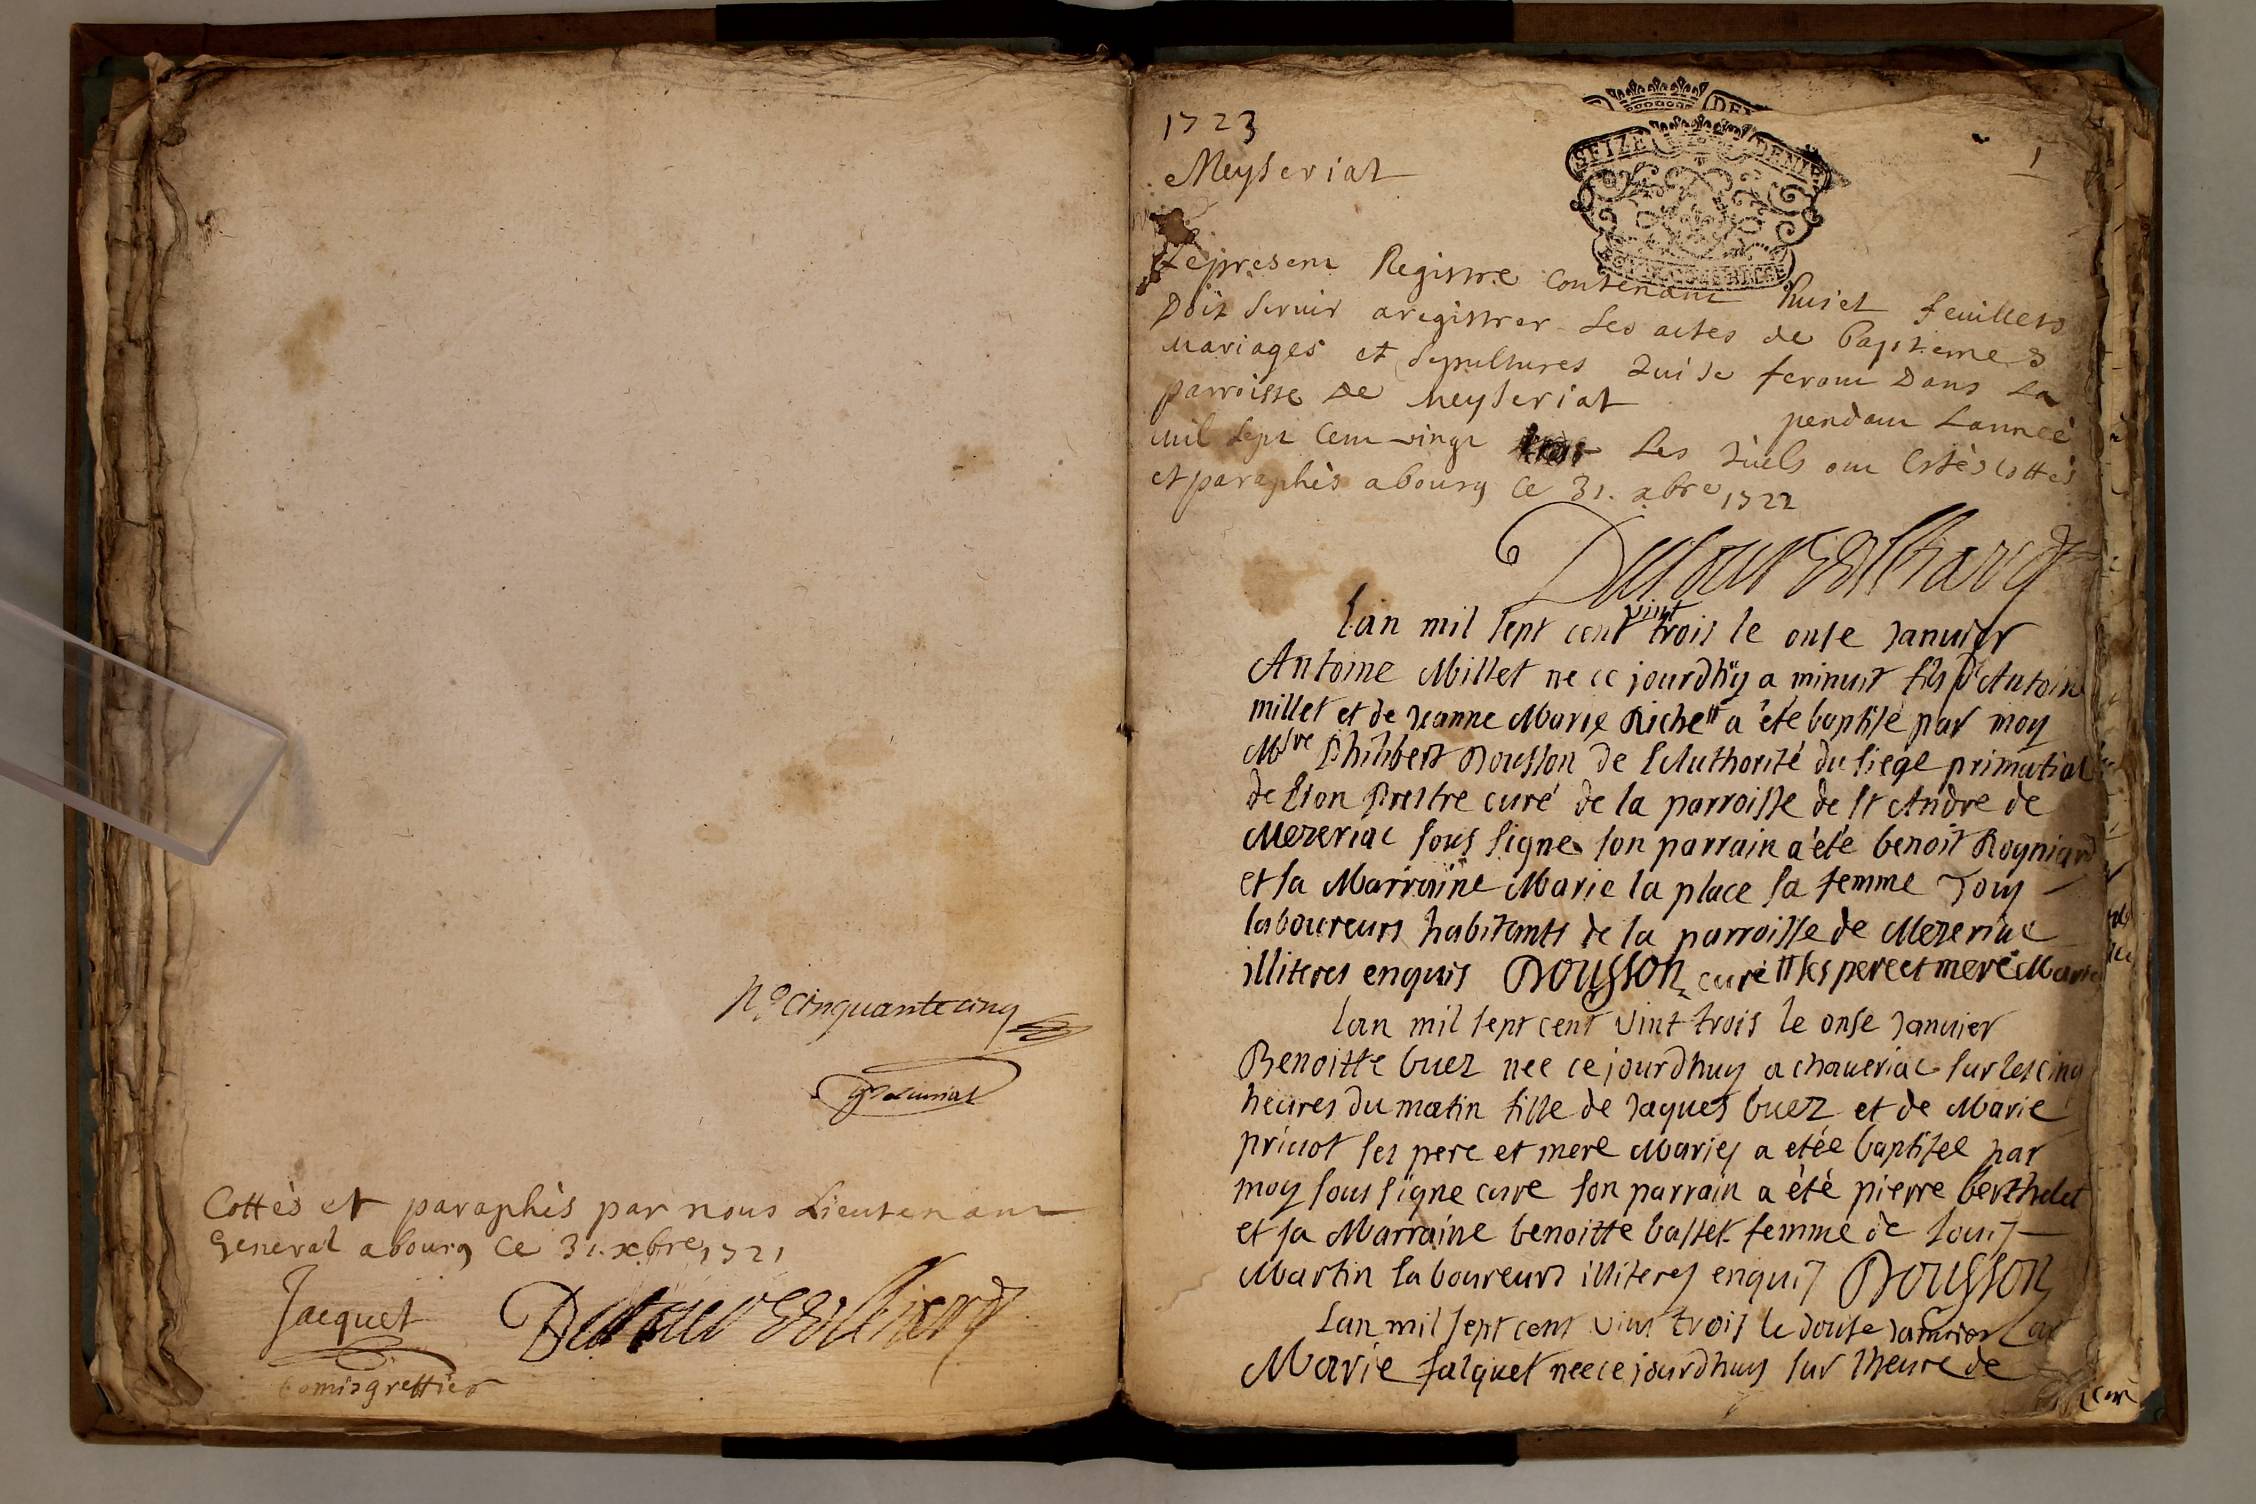 N.º Cinquante cinq
Cottès et paraphès par nous Lieutenant
General abourg Ce 31. xbre 1721
Jacquet
Comis greffier
1723
1
SEIZE DENIE
Meyseriat
Le present Registre contenant huict feuillets
Doit servir aregistrer Les actes de baptemes
Mariages et sepultures Qui se feront Dans La
parroisse De Meyseriat pendant Lanneé
mil sept Cent vingt trois Les Quels ont Estés Cottés
et paraphès abourg Ce 31. xbre 1722
Lan mil sept cent vint trois le onse Januier
Antoine Millet ne ce jourdhuy a minuit fils d'Antoine
millet et de Jeanne Marie Riche # a été baptise par moy
Msre Philibert Dousson de l'Authorité du siege primatial
de Lion Prestre curé de la parroisse de st Andre de
Mezeriac sous signe son parrain a été benoit Royniard
et sa Marraine Marie la place sa femme Tous
laboureurs habitants de la parroisse de Mezeriac
illiteres enquis Dousson curé # ses pere et mere Maries
Lan mil sept cent vint trois le onse Januier
Benoitte buez nee ce jourdhuy a chaueriac sur les cinq
heures du matin fille de Jaques buez et de Marie
priuot ses pere et mere Maries a etée baptisee par
moy sous signe cure son parrain a été pierre berthelet
et sa Marraine benoitte bastet femme de Louis
Martin laboureurs illiteres enquis Dousson
Lan mil sept cent vint trois le douse Januier
Marie falquet nee ce jourdhuy sur lheure de
curé